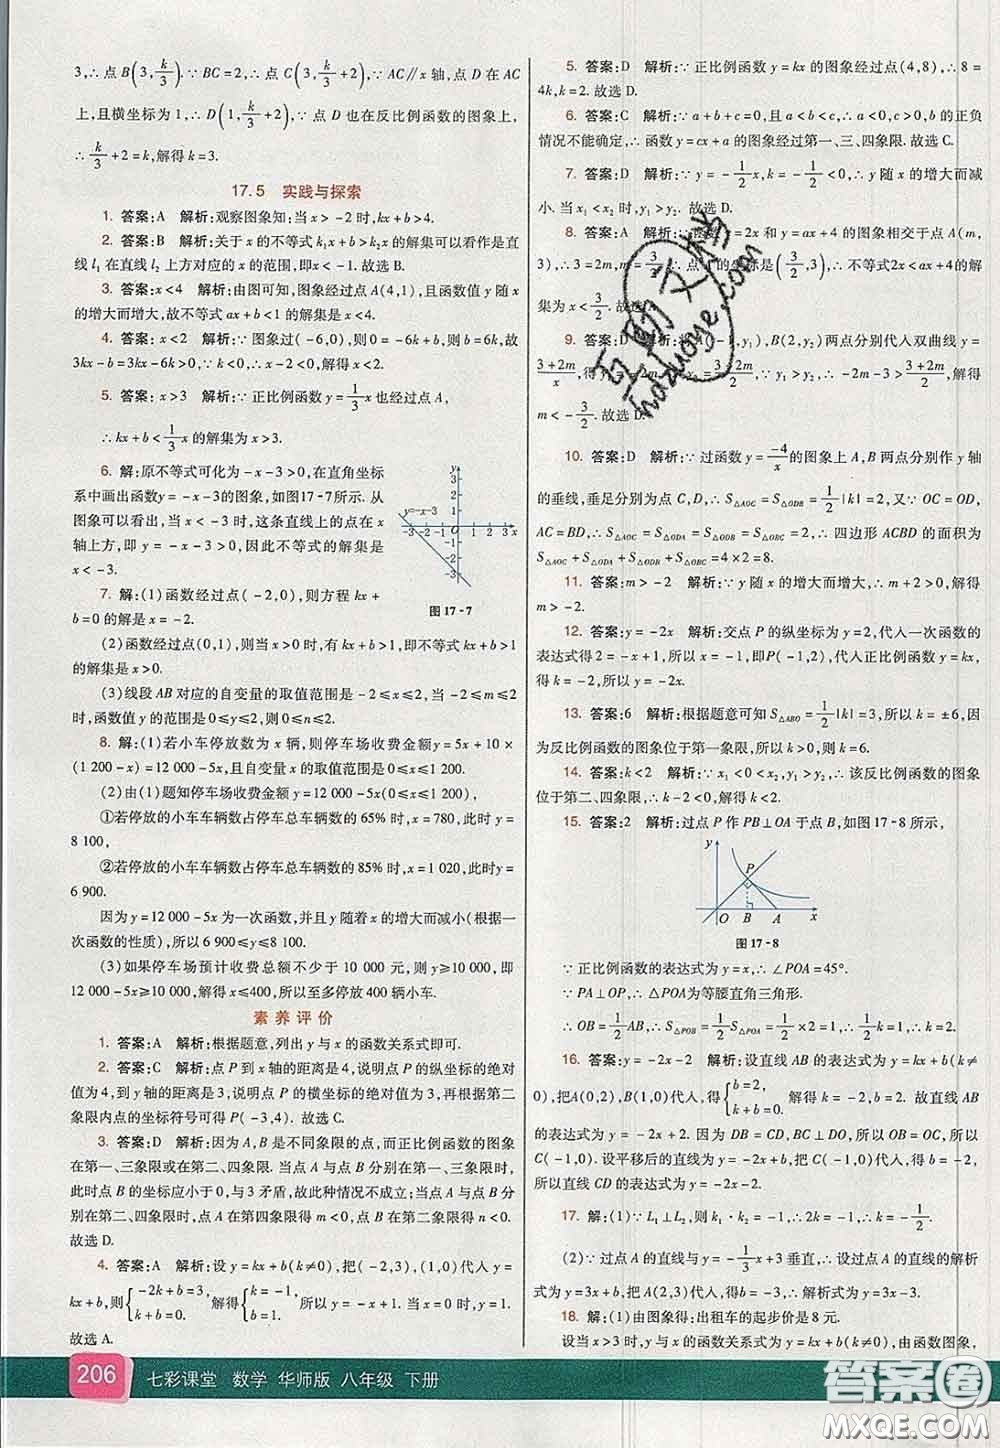 3,∴点 B(3,k/3).∵BC=2,∴点 C(3,k/3+2),∵AC∥x 轴,点 D 在 AC
上,且横坐标为1,∴D(1,k/3+2),∵点 D 也在反比例函数的图象上,
∴k/3+2=k,解得 k=3.
17.5 实践与探索
1. 答案:A 解析:观察图象知:当 x>-2 时,kx+b>4.
2. 答案:B 解析:关于 x 的不等式 k₁x+b>k₂x 的解集可以看作是直
线 l₁ 在直线 l₂ 上方对应的 x 的范围,即 x<-1.故选 B.
3. 答案:x<4 解析:由图可知,图象经过点 A(4,1),且函数值 y 随 x
的增大而增大,故不等式 ax+b<1 的解集为 x<4.
4. 答案:x<2 解析:∵图象过(-6,0),则0=-6k+b,则 b=6k,故
3kx-b=3kx-6k>0,∵k<0,∴x-2<0,解得:x<2.
5. 答案:x>3 解析:∵正比例函数 y=1/3x 也经过点 A,
∴kx+b<1/3x 的解集为 x>3.
6. 解:原不等式可化为-x-3>0,在直角坐标
系中画出函数y=-x-3的图象,如图17-7所示.从
图象可以看出,当x<-3时,这条直线上的点在x
轴上方,即y>0,因此不等式的解集为x<-3.
y=-x-3
y
3
2
1
-3 -2 -1 O 1 2 3 x
-1
-2
-3
图 17-7
7. 解:(1)函数经过点(-2,0),则方程 kx+
b=0 的解是 x=-2.
(2)函数经过点(0,1),则当 x>0时,有 kx+b>1,即不等式 kx+b>1
的解集是 x>0.
(3)线段 AB 对应的自变量的取值范围是-2≤x≤2,当-2≤m≤2
时,函数值 y 的范围是0≤y≤2,则0≤n≤2.
8. 解:(1)若小车停放数为 x 辆,则停车场收费金额y=5x+10×
(1 200-x)=12 000-5x,自变量 x 的取值范围为0≤x≤1 200.
(2)由(1)题知停车场收费金额 y=12 000-5x(0≤x≤1 200),
①若停放的小车车辆数占停车总车辆数的 65%时,x=780,此时y=
8 100,
②若停放的小车车辆数占停车总车辆数的 85%时,x=1 020,此时y=
6 900.
因为 y=12 000-5x 为一次函数,并且 y 随着 x 的增大而减小(根据一
次函数的性质),所以 6 900≤y≤8 100.
(3)如果停车场预计收费总额不少于 10 000 元,则 y=12 000-
5x≥10 000,解得 x≤400,所以至多停放 400 辆小车.
素养评价
1. 答案:A 解析:根据题意,列出 y 与 x 的函数关系式即可.
2. 答案:C 解析:点 P 到 x 轴的距离是 4,说明点 P 的纵坐标的绝对
值为 4,到 y 轴的距离为 3,说明点 P 的横坐标的绝对值为 3,再根据第二
象限内点的坐标符号可得 P(-3,4).故选 C.
3. 答案:D 解析:因为 A,B 是不同象限的点,而正比例函数的图象
在第一、三象限或在第二、四象限.当点 A 与点 B 在第一、三象限时,
此时点 B 的纵坐标应小于0,与 3 矛盾,故此种情况不成立.当点 A 与点 B 分
别在第二、四象限时,点 A 在第四象限得 m<0,点 B 在第二象限得 n<0.
故选 D.
4. 答案:A 解析:设 y=kx+b(k≠0),把(-2,3),(1,0)代入
y=kx+b,则{-2k+b=3, k+b=0. 解得{k=-1, b=1. 所以,当 x=0时,y=1.
故选 A.
5. 答案:D 解析:∵正比例函数 y=kx 的图象经过点(4,8),∴8=
4k,k=2.故选 D.
6. 答案:C 解析:∵a+b+c=0,且 a<b<c,∴a<0,c>0,b 的正负
情况不能确定,∴函数 y=cx+a 的图象经过第一、三、四象限.故选 C.
7. 答案:D 解析:∵y=-1/2x,k=-1/2<0,∴y 随 x 的增大而减
小.当 x₁<x₂ 时,y₁>y₂.故选 D.
8. 答案:A 解析:∵函数 y=2x 和 y=ax+4 的图象相交于点 A(m,
3),∴3=2m,m=3/2,∴点 A 的坐标是(3/2,3),∴不等式2x<ax+4的解
集为 x<3/2.故选 A.
9. 答案:D 解析:将 A(-1,y₁),B(2,y₂)两点分别代入双曲线 y=
(3+2m)/x,得 y₁=-3-2m,y₂=(3+2m)/2,∵y₁>y₂,∴-2m-3>(3+2m)/2,解得
m<-3/2.故选 D.
10. 答案:D 解析:∵过函数 y=-4/x 的图象上 A,B 两点分别作 y 轴
的垂线,垂足分别为点 C,D,∴S△AOC=S△ODB=1/2|k|=2,又∵OC=OD,
AC=BD,∴S△AOC=S△ODA=S△ODB=S△OBC=2,∴四边形 ACBD 的面积为
S△AOC+S△ODA+S△ODB+S△OBC=4×2=8.
11. 答案:m>-2 解析:∵y 随 x 的增大而增大,∴m+2>0,解得
m>-2.
12. 答案:y=-2x 解析:交点 P 的纵坐标为 y=2,代入一次函数的
表达式得2=-x+1,所以x=-1,即P(-1,2),代入正比例函数 y=kx,
得 k=-2,所以 y=-2x.
13. 答案:6 解析:根据题意可知 S△ABO=1/2|k|=3,所以 k=±6,因
为反比例函数的图象位于第一象限,所以 k>0,所以 k=6.
14. 答案:k<2 解析:∵x₁<0<x₂时,y₁>y₂,∴该反比例函数的图象
位于第二、四象限,∴k-2<0,解得 k<2.
15. 答案:2 解析:过点 P 作 PB⊥OA 于点 B,如图 17-8 所示,
y
P
O B A x
图 17-8
∵正比例函数的表达式为 y=x,∴∠POA=45°.
∵PA⊥OP,∴△POA为等腰直角三角形.
∴OB=1/2AB,∴S△POB=1/2S△POA=1/2×2=1,∴1/2k=1,∴k=2.
16. 答案:y=-2x-2 解析:设直线 AB 的表达式为 y=kx+b(k≠
0),把A(0,2),B(1,0)代入,得{b=2, k+b=0. 解得 k=-2,b=2.故直线 AB
的表达式为 y=-2x+2.因为 DB=CD,BC⊥OD,所以 OC=OB,所以
C(-1,0).设平移后的直线为 y=-2x+b,把 C(-1,0)代入,得 b=-2,
所以直线 CD 的表达式为 y=-2x-2.
17. 解:(1)∵L₁⊥L₂,则 k₁·k₂=-1,∴2k=-1,∴k=-1/2.
(2)∵过点 A 的直线与 y=-1/3x+3 垂直,∴设过点 A 的直线的解析
式为 y=3x+b,把 A(2,3)代入,得 b=-3,所以解析式为 y=3x-3.
18. 解:(1)由图象得:出租车的起步价是 8 元.
设当 x>3 时,y 与 x 的函数关系式为 y=kx+b(k≠0),由函数图象,
206 七彩课堂 数学 华师版 八年级 下册
互助文档
hdzuoye.com
答案圈
MXQE.COM